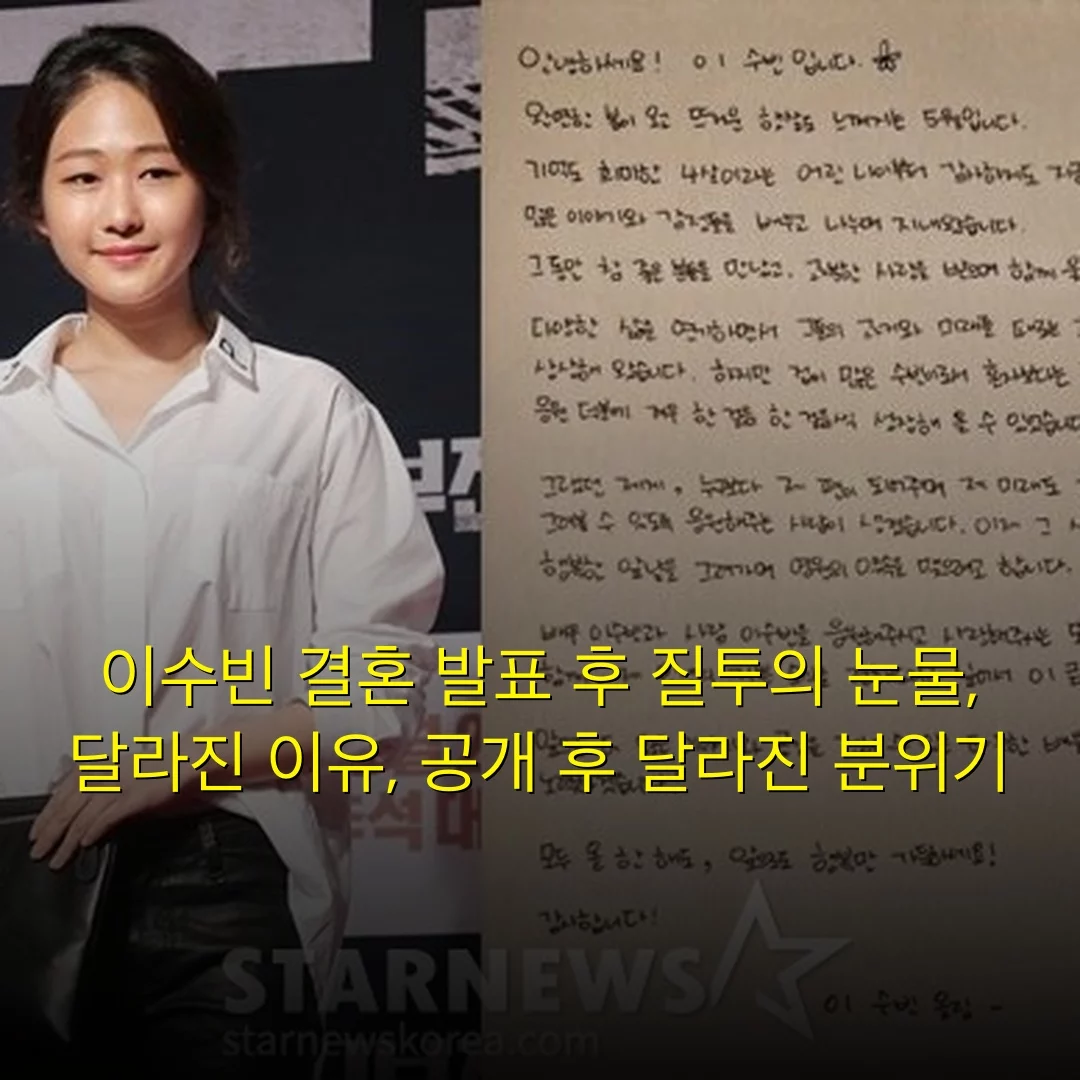 안녕하세요! 이 수빈 입니다.
완연한 봄이 오고 뜨거운 햇살도 느껴지는 5월입니다.
기억도 희미한 4살이라는 어린 나이부터 감사하게도 지금
많은 이야기와 감정들을 배우고 나누며 지내왔습니다.
그동안 참 좋은 분들을 만났고, 과분한 사랑을 받으며 함께
다양한 삶을 연기하면서 그들의 과거와 미래를
상상해 왔습니다. 하지만 겁이 많은 수빈이로서 혼자보다는
응원 덕분에 겨우 한 걸음 한 걸음씩 성장해 올 수 있었습니다
그랬던 제게, 누구보다 제 편이 되어주며 제 미래도
그려볼 수 있도록 응원해주는 사람이 생겼습니다. 이제 그
행복한 앞날을 그려가며 영원의 약속을 맺으려고 합니다.
배우 이수빈과 사람 이수빈을 응원해주시고 사랑해주시는
이수빈 결혼 발표 후 질투의 눈물,
달라진 이유, 공개 후 달라진 분위기
모두 올 한 해도, 앞으로도 행복만 가득하세요!
감사합니다!
STARNEWS
starnewskorea.com
이 수빈 올림 -